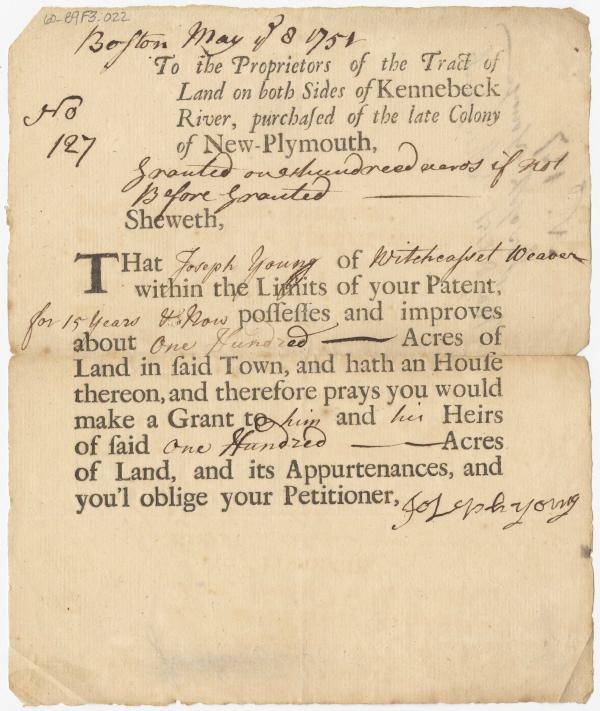 60-89F3-022
Boston May ye 8 1751
To the Proprietors of the Tract of
Land on both Sides of Kennebeck
River, purchaſed of the late Colony
of New-Plymouth,
No
127
Granted one hundred acres if not
Before Granted
Sheweth,
THat Joseph Young of Witchcaſset Weaver
within the Limits of your Patent,
for 15 Years & Now poſſeſſes and improves
about One Hundred Acres of
Land in ſaid Town, and hath an Houſe
thereon, and therefore prays you would
make a Grant to him and his Heirs
of ſaid One Hundred Acres
of Land, and its Appurtenances, and
you'l oblige your Petitioner,
Joseph Young